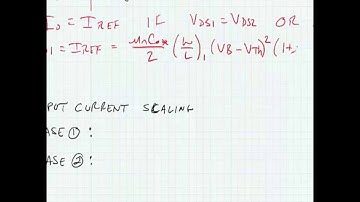 I0 = IREF IF VDS1 = VDS2 OR
D1 = IREF = µnCox/2 (W/L)1 (VB - VTh)² (1+
PUT CURRENT SCALING
ASE ① :
ASE ② :